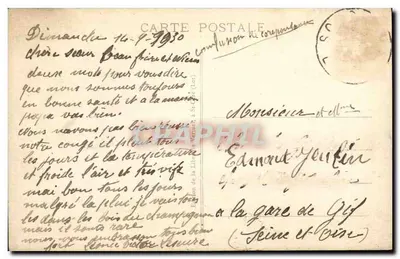 CARTE POSTALE
Dimanche 14-9-1930
chère sœur beau frère et
deux mots pour vous dire
que nous sommes toujours
en bonne santé et à la maison
papa va bien.
Nous n'avons pas bien
notre congé il pleut tous
les jours et la température
est froide l'air est très vif
mai bon tous les jours
malgré la pluie je vais tous
les dans les bois du champignon
mais il sont rare
nous vous embrassons tous bien
fort
confusion de correspondance
Monsieur et Mme
Edmond
à la gare de Gif
(Seine et Oise)